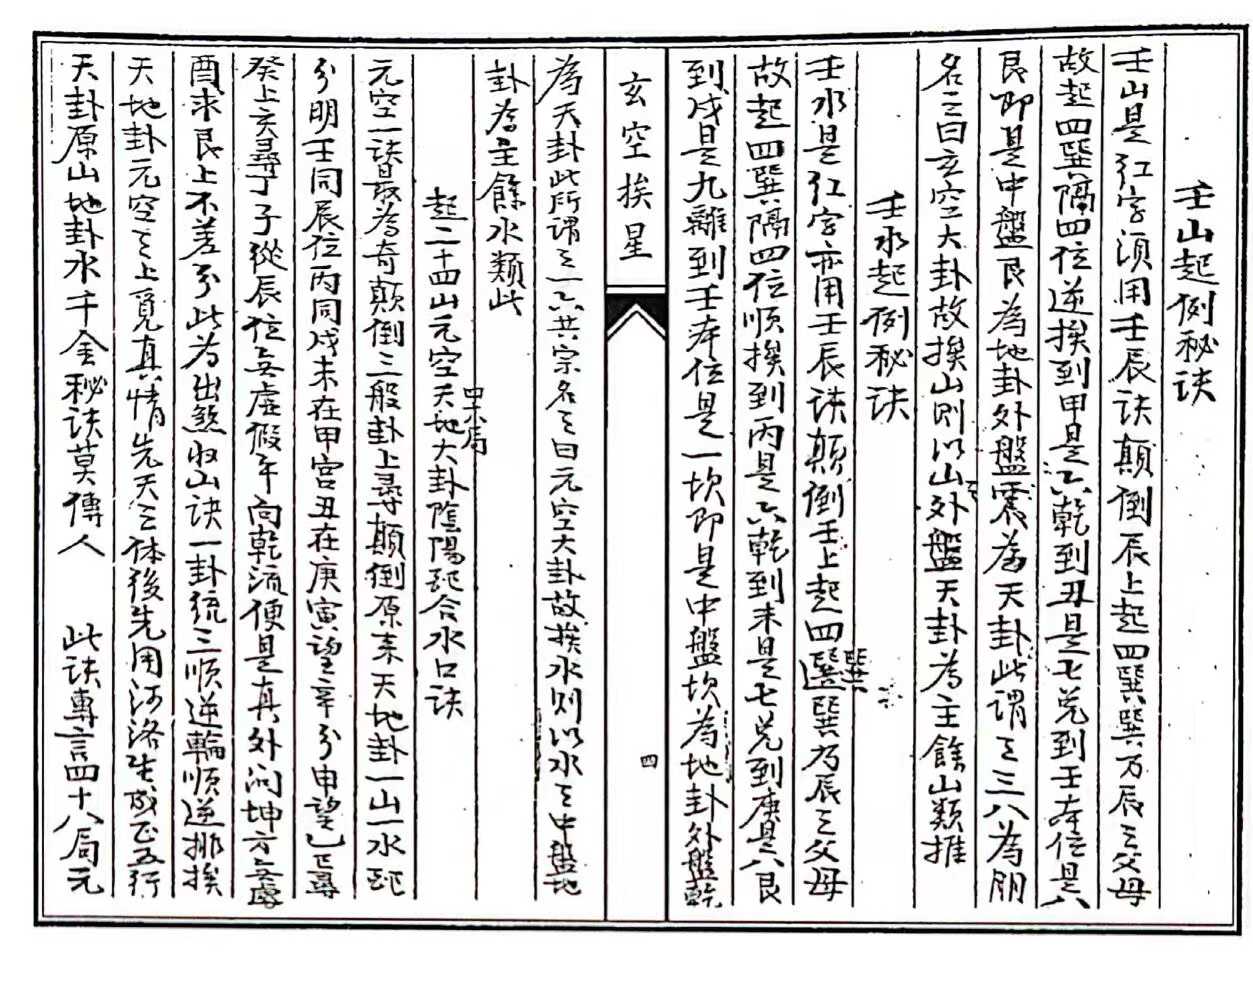 壬山起例秘诀
壬山是红字须用壬辰诀颠倒辰上起四巽巽乃辰之父母
故起四巽隔四位逆挨到甲是六乾到丑是七兑到壬本位是八
艮即是中盤艮為地卦外盤震為天卦此謂之三八為朋
名之曰玄空大卦故挨山则以山之外盤天卦為主餘山類推
壬水起例秘诀
壬水是红字亦用壬辰诀颠倒壬上起四巽巽乃辰之父母
故起四巽隔四位顺挨到丙是六乾到未是七兑到庚是八艮
到戌是九離到壬本位是一坎即是中盤坎為地卦外盤乾
玄空挨星
四
為天卦此所謂之一六共宗名之曰元空大卦故挨水则以水之中盤地
卦為主餘水類此
起二十四山元空天地大卦陰陽配合水口诀
元空一诀最為奇颠倒三般卦上尋颠倒原来天地卦一山一水配
分明壬同辰位丙同戌未在甲宫丑在庚寅望辛分申望乙巳尋
癸上亥尋丁子從辰位無虚假午向乾流便是真外向坤方無處
酉求艮上不差分此为出煞收山诀一卦统三顺逆輪顺逆排挨
天地卦元空之上覓真情先天之体後先用河洛生成正五行
天卦原山地卦水千金秘诀莫傳人 此诀專言四十八局元